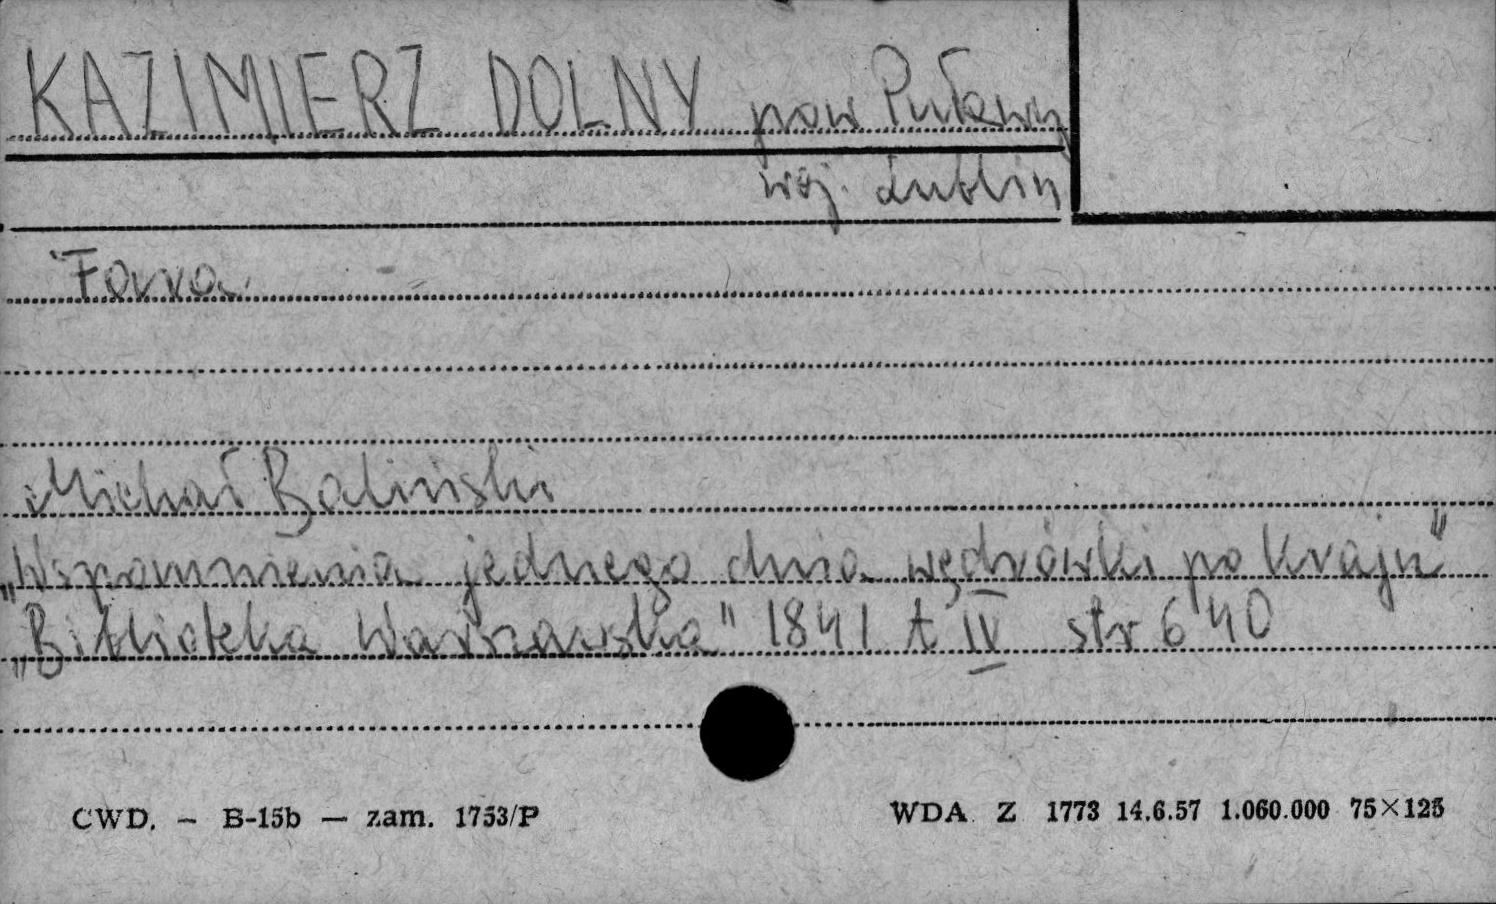 KAZIMIERZ DOLNY pow Puławy
woj. Lublin
Fara
Michał Baliński
„Wspomnienia jednego dnia wędrówki po kraju"
„Biblioteka Warszawska" 1841 t IV str 640
CWD. — B-15b — zam. 1753/P
WDA Z 1773 14.6.57 1.060.000 75×125